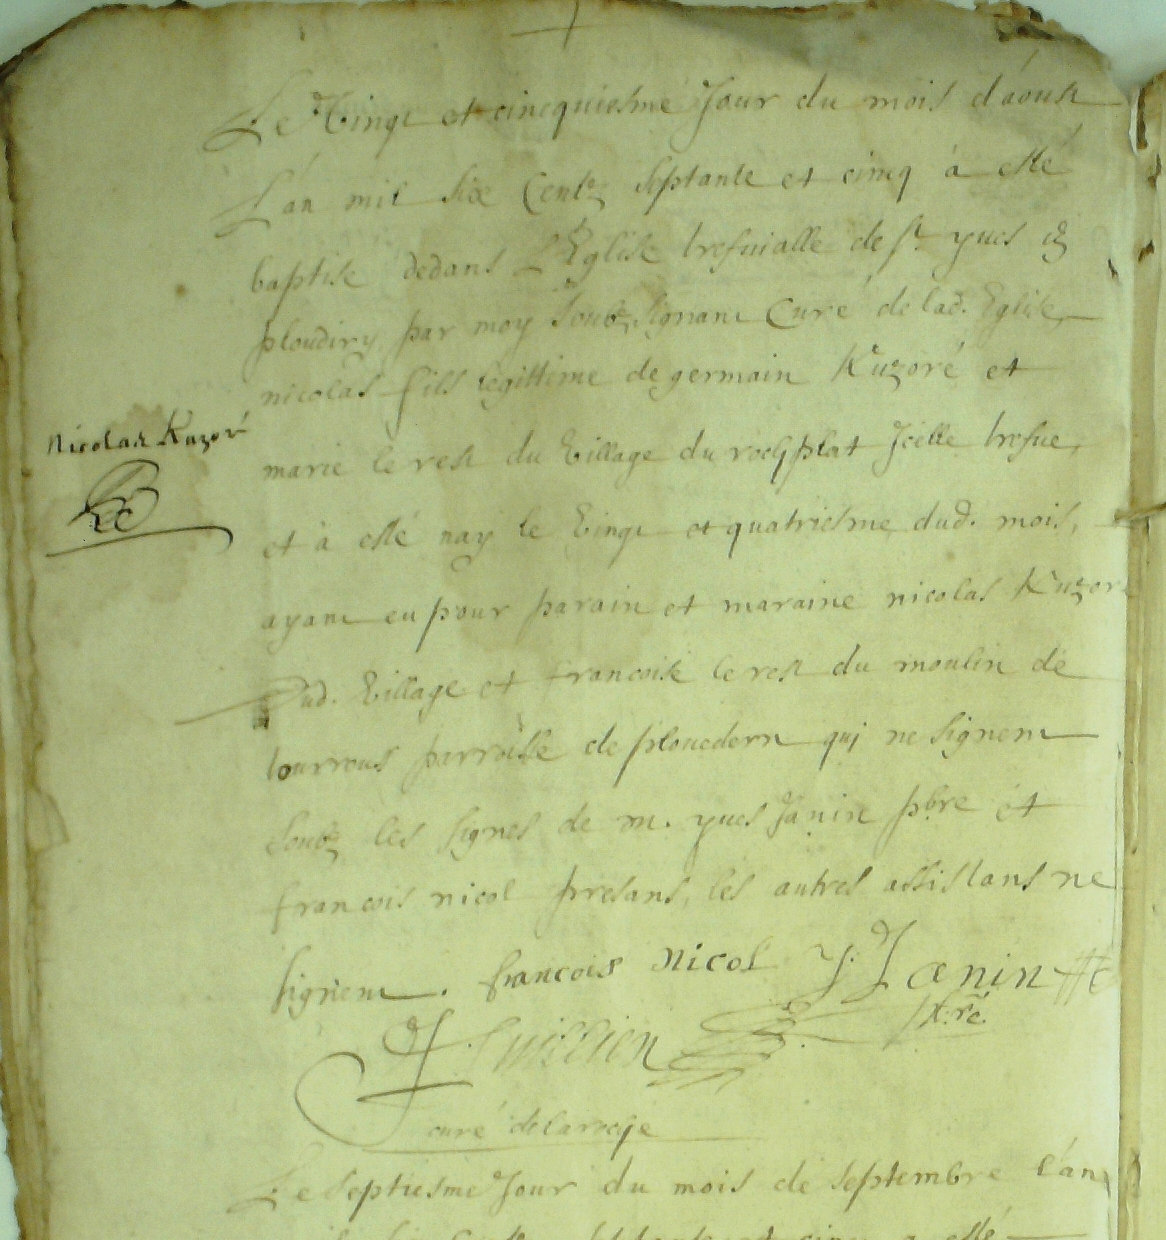 Le Vingt et cincquiesme Jour du mois d'aoust
L'an mil six Centz septante et cinq à esté
baptisé dedans L'Eglise trefuialle de st yues en
ploudiry par moy Soubz signant Curé de lad. Eglise,
nicolas fils legittime de germain Kuzoré et
Nicolas Kuzoré
marie le rest du Village du rochplat Jcelle trefue,
et à esté nay le Vingt et quatriesme dud. mois,
ayant eu pour parain et maraine nicolas Kuzoré
dud. Village et francoise le rest du moulin de
parroisse de plouedern qui ne signent
Soubz les signes de m. yues Janin pbre et
francois nicol presans, les autres assistans ne
signent. francois Nicol Y: Janin
pbre
curé de la roche
Le septiesme Jour du mois de septembre l'an